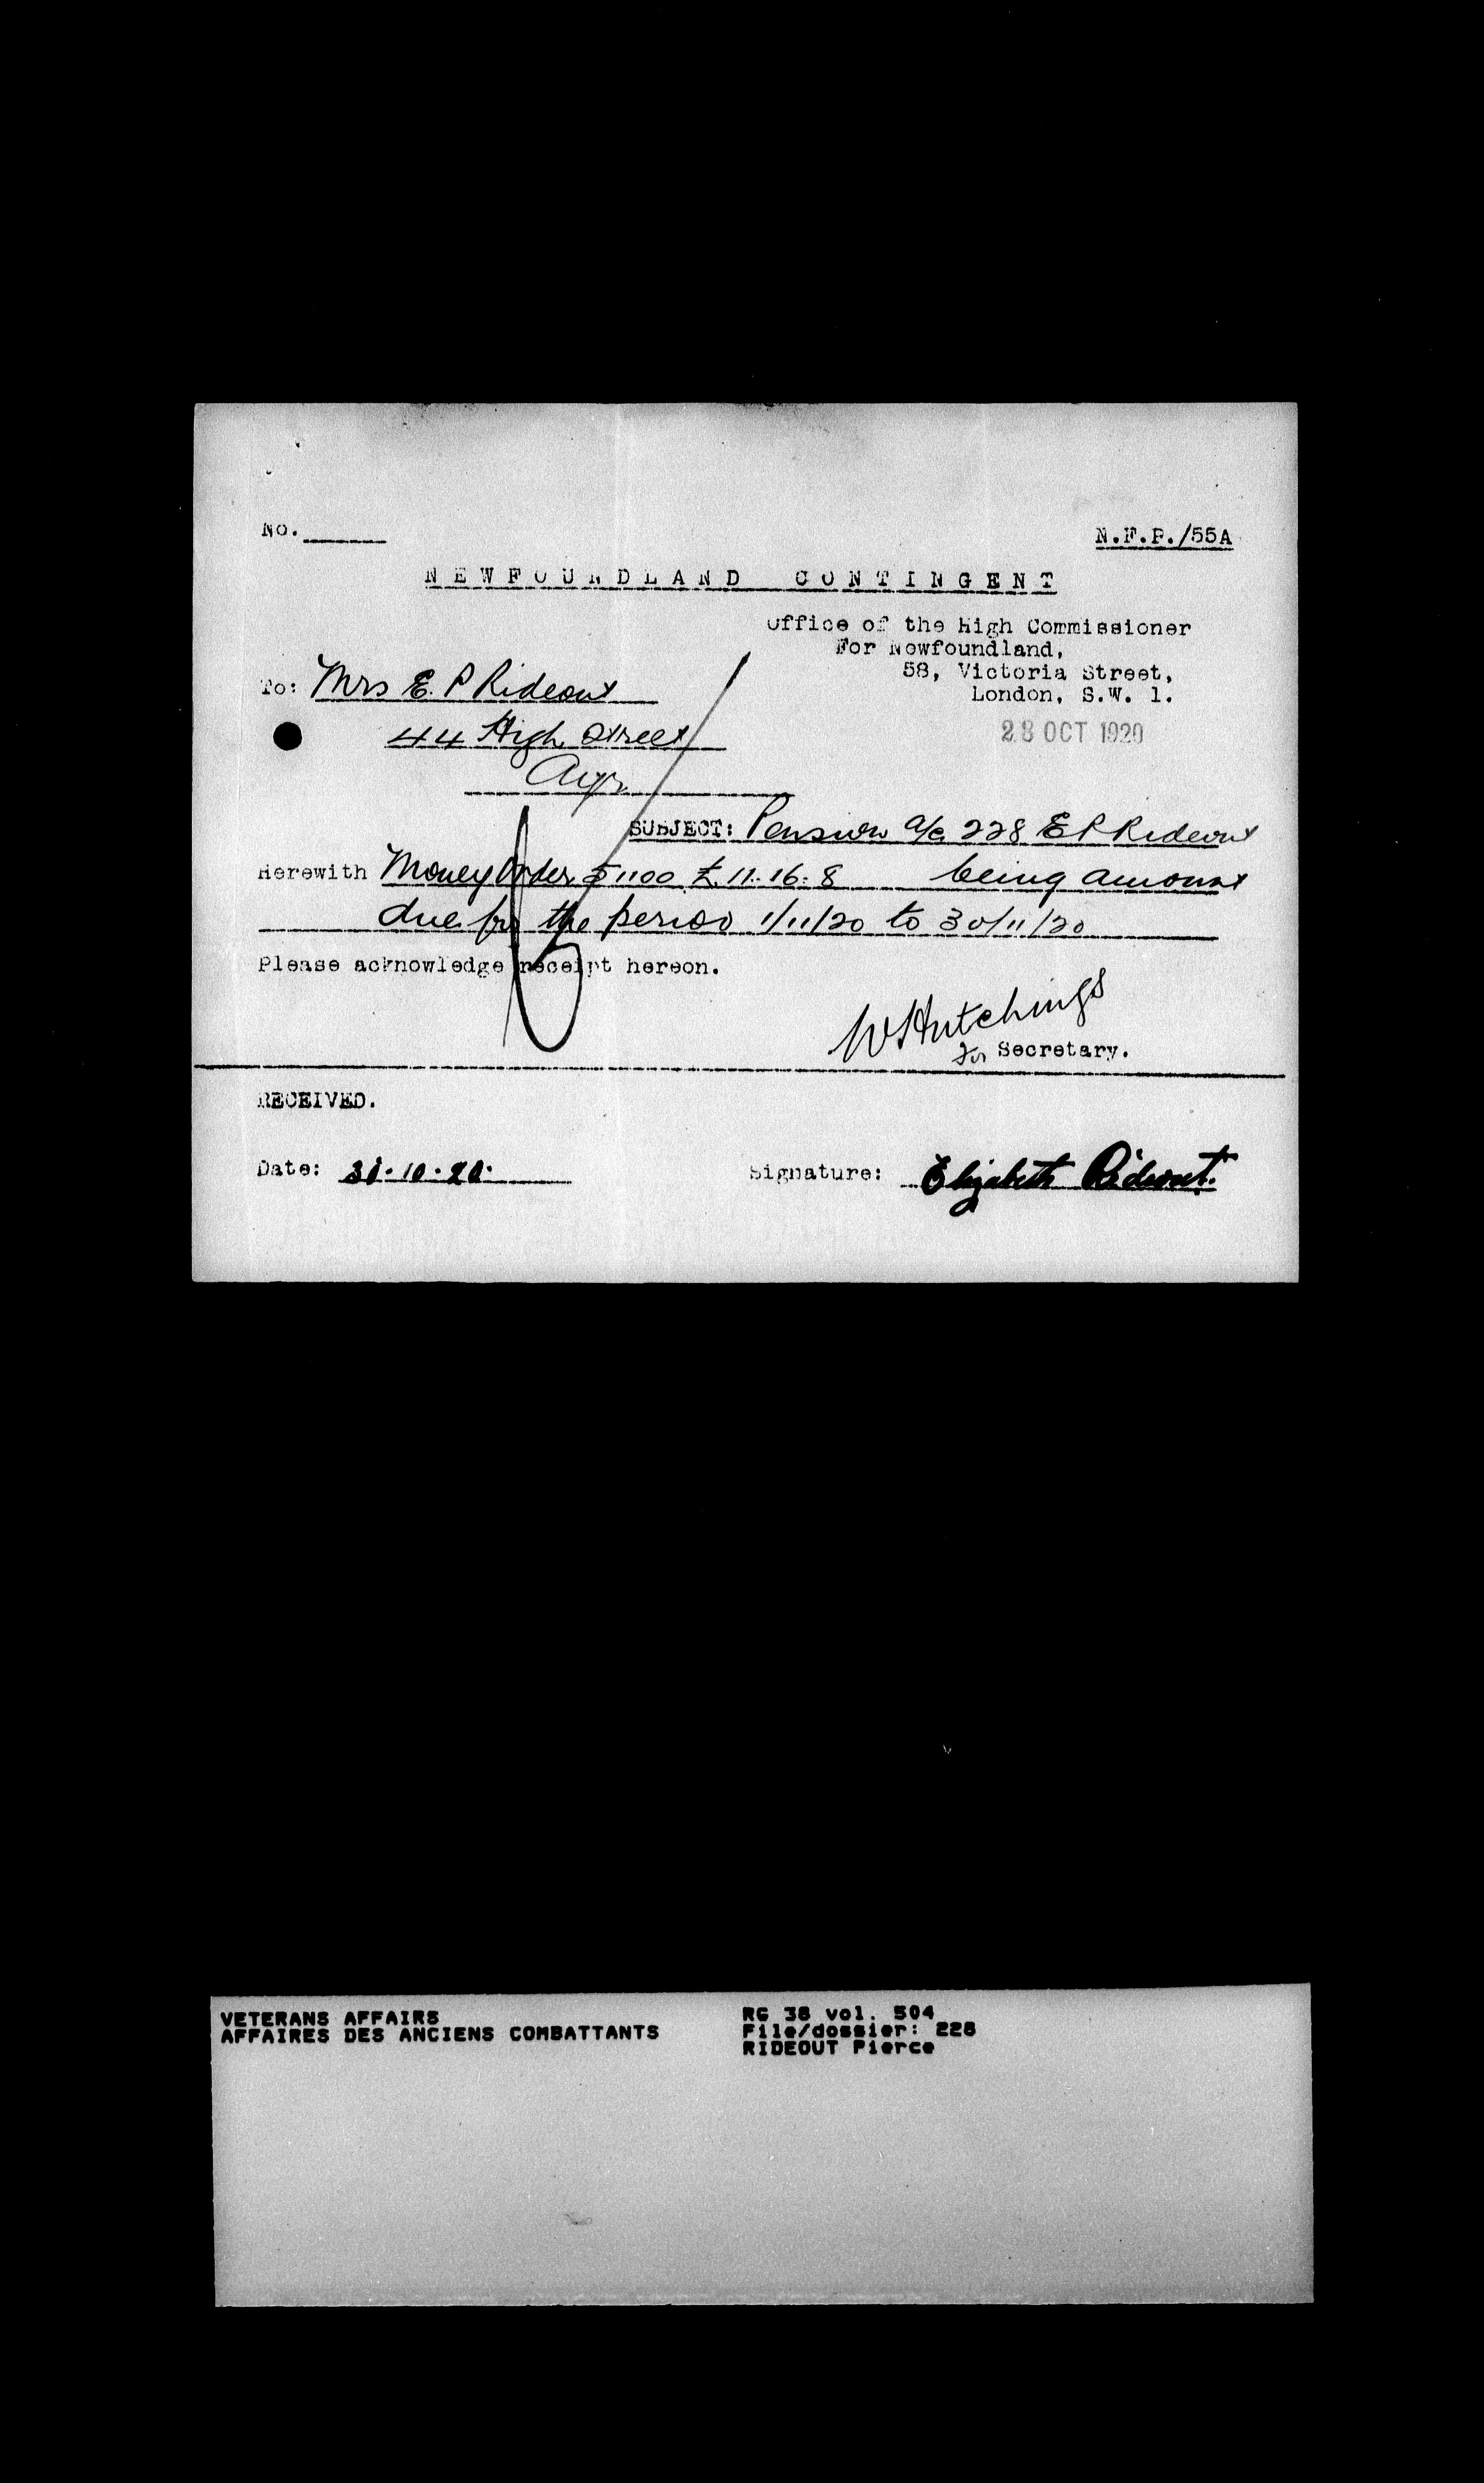 No.
N.F.P./55A
NEWFOUNDLAND CONTINGENT
Office of the High Commissioner
For Newfoundland,
58, Victoria Street,
London, S.W. 1.
To: Mrs E. P Rideout
44 High Street
Ayr
28 OCT 1920
SUBJECT: Pension a/c 228 E P Rideout
Herewith Money Order 1100 £ 11. 16. 8 being amount
due for the period 1/11/20 to 30/11/20
Please acknowledge receipt hereon.
W Hutchings
for Secretary.
RECEIVED.
Date: 31.10.20.
Signature: Elizabeth Rideout.
VETERANS AFFAIRS
AFFAIRES DES ANCIENS COMBATTANTS
RG 38 vol. 504
File/dossier: 228
RIDEOUT Pierce